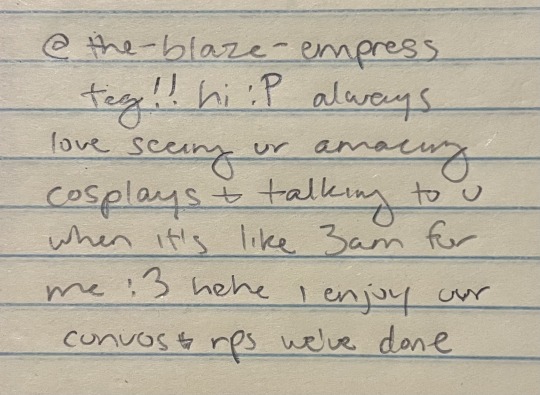 @ the-blaze-empress
teg!! hi :P always
love seeing ur amazing
cosplays + talking to u
when it's like 3am for
me :3 hehe i enjoy our
convos + rps we've done